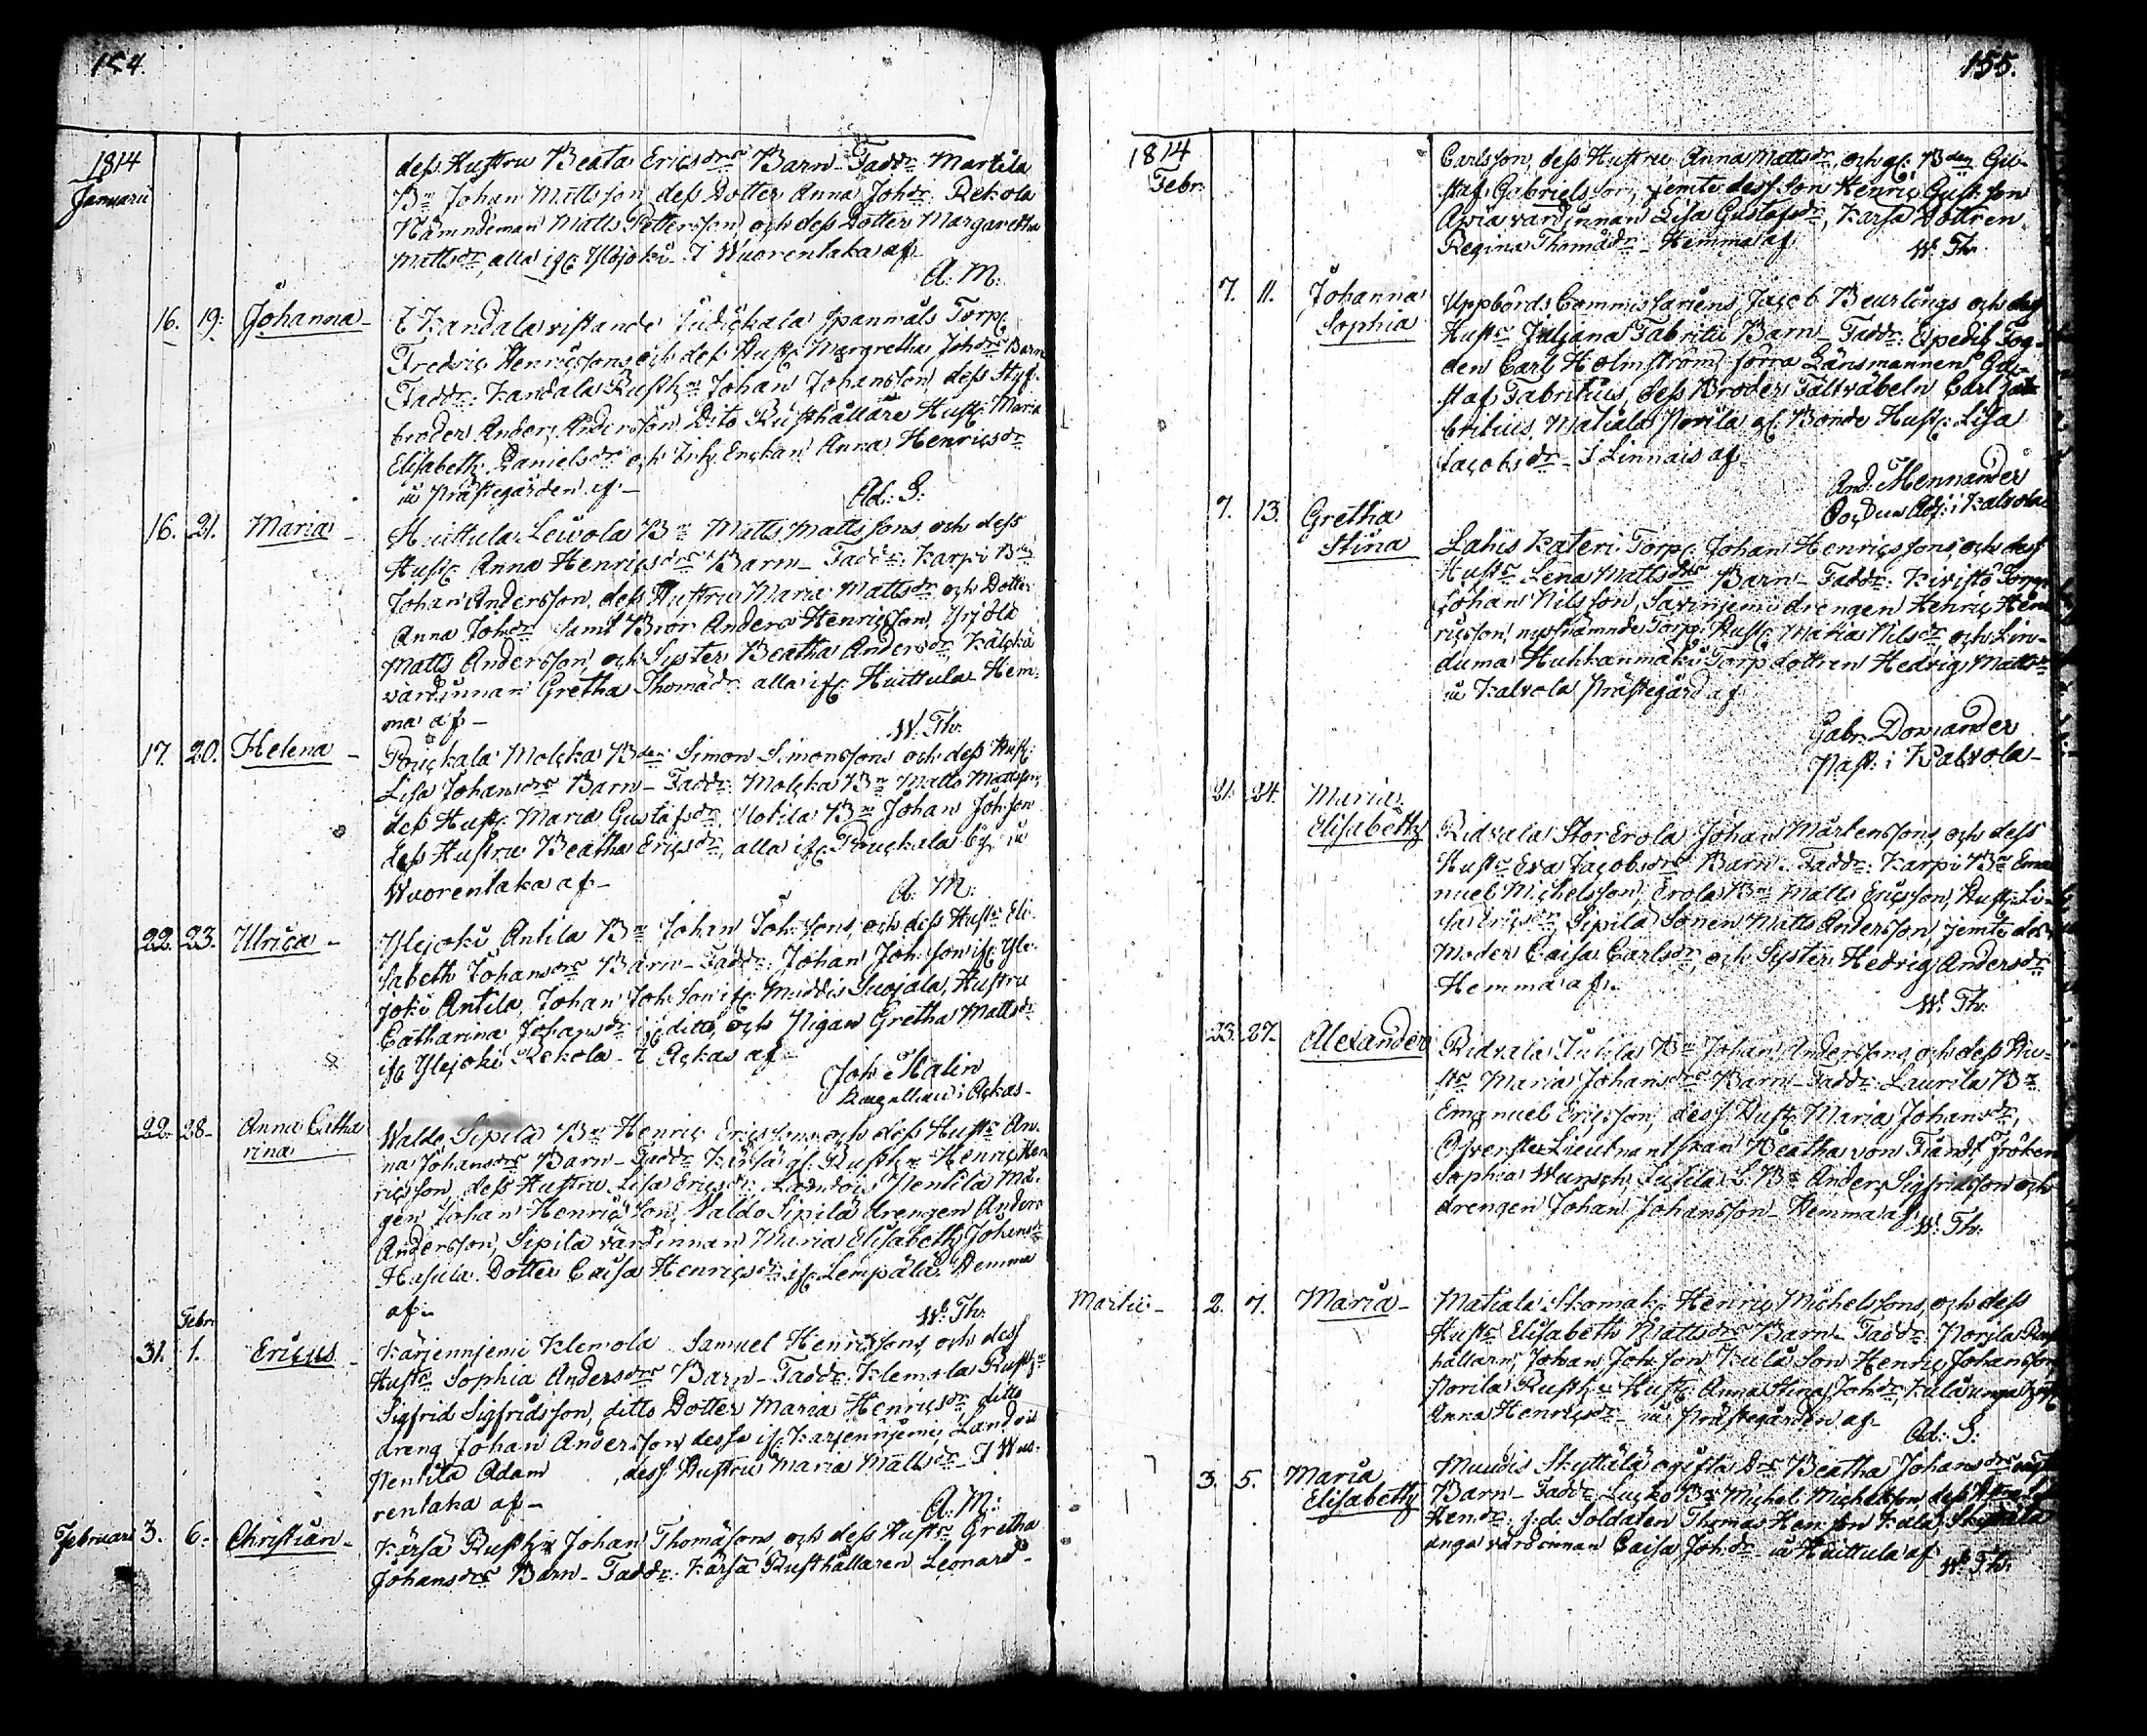 154.
1814
Januarii
dess Hustru Beata Ericsdrs Barn - Faddr Martila
Bn Johan Mattsson dess Dotter Anna Johdr. Rekola
Nämndeman Matts Pettersson och dess Dotter Margaretha
Mattsdr, alla ifr. Yläjoki - I Wuorentaka af -
A: M:
16. 19: Johanna - I Kandala vistande Judickala spanmåls Torp:
Fredric Henricssons och dess Hust: Margretha Johdrs Barn
Faddr: Kandala Rusth:n Johan Johansson dess
broder Anders Andersson Dito Rusthållare Hust: Maria
Elisabeth Danielsdr och Enckan Anna Henricsdr
in Prästegården af. -
Ad: S:
16. 21. Maria - Huittula Lewola Bn Matts Matts sons och dess
Hust: Anna Henricsdrs Barn - Faddr: Karpi Bn
Johan Andersson, dess Hustru Maria Mattsdr och Dotter
Anna Johdr samt Bror Anders Henricsson, Yrjölä
Matts Andersson och Syster Beatha Andersdr, Kälckä
värdinnan Gretha Thomädr alla ifr. Huittula - Hem:
ma af -
W. Th:
17. 20. Helena - Rouckala Molcka Bden Simon Simonssons och dess Hust:
Lisa Johansdrs Barn - Faddr: Molcka Bn Matts Mattsson,
dess Hust: Maria Gustafsdr, Bn Johan Joh:son
dess Hustru Beatha Ericsdr, alla ifr. Rouckala by, in
Wuorentaka af -
A: M:
22. 23. Ulrica - Ylejoki Antila Bn Johan Joh:sons, och dess Hustr: Eli-
sabeth Johansdrs Barn - Faddr: Johan Joh:son ifr. Yle-
joki Antila, Johan Joh:son ifr. Muddis Suojala, Hustru
Catharina Johansdr ifr. ditto, och Pigan Gretha Mattsdr
ifr. Ylejoki Rekola - I Ackas af -
Joh: Malin
i Ackas -
22. 28. Anna Catha
rina
Waldo Sipilä Bn Henric Ericssons och dess Hustr: An-
na Johansdrs Barn - Faddr: Kärsä gl: Rusth:n Henric Hen
ricsson, dess Hustru Lisa Ericsdr, Pentila Må-
gen Johan Henricsson, Waldo Sipilä drengen Anders
Andersson, Sipila värdinnan Maria Elisabeth Johansdr
Hasula Dotter Caisa Henricsdr ifr. Lempälä, Hemma
af -
W: Th:
Febr:
31. 1. Ericus - Kärjenniemi Klemola Samuel Henricssons, och dess
Hustr: Sophia Andersdrs Barn - Faddr: Klemola Rusth:n
Sigfrid Sigfridsson, ditto Dotter Maria Henricsdr, ditto
dreng Johan Andersson dessa ifr. Karjenniemi, Landvis
Pentilä Adam , dess Hustru Maria Mattsdr - I Wuo-
rentaka af -
A: M:
Februarii 3. 6. Christian - Kärsä Rusth:n Johan Thomäsons och dess Hustr: Gretha
Johansdrs Barn - Faddr: Kärsä Rusthållaren Leonard
155.
1814
Febr:
Carlsson, dess Hustru Anna Mattsdr, och gl: Bden Gu-
staf Gabrielsson, jemte dess son Henric Gust: son
värdinnan Lisa Gustafsdr, Kärsä Dottren
Regina Thomädr - Hemma af
W: Th:
7. 11. Johanna
Sophia
Uppbörds Commissariens Jacob Beurlings och dess
Hustr: Juliana Fabritii Barn - Faddr: Expedit: Fog-
den Carl Holmström, förra Länsmannen Gu-
staf Fabritius, dess Broder Fältväbeln Carl Fa
britius, Matiala Norila gl: Bonde Hust: Lisa
Jacobsdr - I Linnais af -
And: Mennander
Adj: i Kalvola
7. 13. Gretha
Stina
Lahis Kateri Torp: Johan Henricssons och dess
Hustr: Lena Mattsdrs Barn - Faddr: Kivistö Torp:
Johan Nilsson, Savinjemi drengen Henric Hen
ricsson, nyssnämnde Torp: Hust: Maria Nilsdr, och Lin-
duma Huhkanmäki Torpdottren Hedvig Mattsdr
in Kalvola Prästegård af
Gabr: Domander
Past: i Kalvola -
21. 24. Maria
Elisabeth
Ridvala Stor Erola Johan Mårtenssons, och dess
Hustr: Eva Jacobsdrs Barn. Faddr: Karpi Bn Ema
nuel Michelsson, Erola Bn Matts Ericsson, Hust: Li-
sa Ericsdr, Sipila Sonen Matts Andersson, jemte dess
Moder Caisa Carlsdr, och Syster Hedvig Andersdr
Hemma af -
W: Th:
23. 27. Alexander
Ridvala Jutila Bn Johan Anderssons och dess Hu-
str: Maria Johansdrs Barn - Faddr: Laurila Bn
Emanuel Ericsson, dess Hust: Maria Johansdr,
Öfverste Lieutnantskan Beatha von Fiandt, Fröken
Sophia Wunsch, Jutila L. Bn Anders Sigfridsson och
drengen Johan Johansson - Hemma af
W: Th:
Martii - 2. 7. Maria - Matiala Skomak: Henric Michelssons, och dess
Hustr: Elisabeth Mattsdrs Barn - Faddr: Norila Rust
hållarn, Johan Joh:son Kulå Son Henric Johansson
Norila Rusth:n Hust: Anna Stina Johdr, Kulå unga
Anna Henricsdr - in Prästegården af -
Ad: S:
3. 5. Maria
Elisabeth
Muudis Skyttälä ogifta Drs Beatha Johansdrs
Barn - Faddr: Lucko Bn Michel Michelsson dess
Hendr. g. d. Soldaten Thomas Hen:son Kulå,
unga värdinnan Caisa Johdr in Huittula af
W: Th: